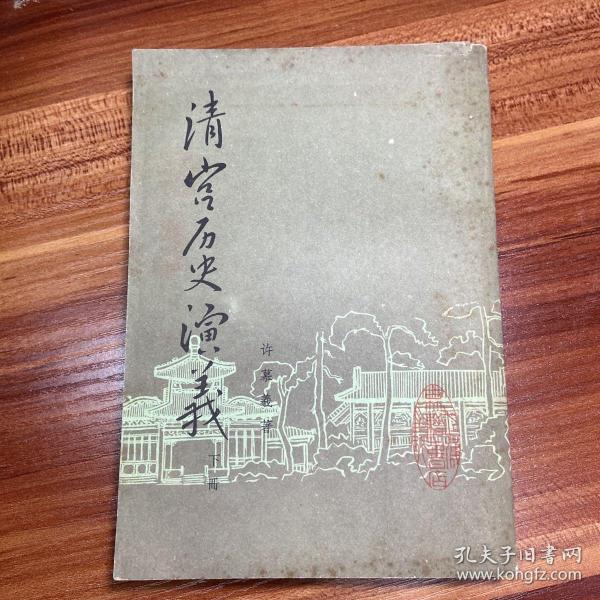 清宫历史演義
许慕羲著
下冊
孔夫子旧書网
www.kongfz.com